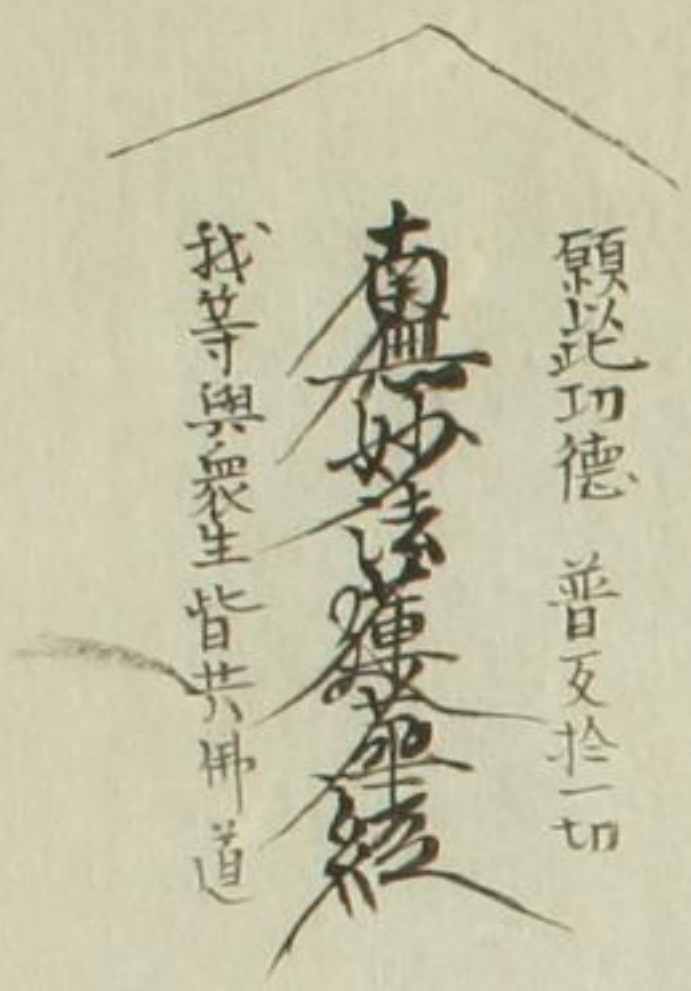 願此功德 普及於一切
南無妙法蓮華經
我等與衆生皆共佛道